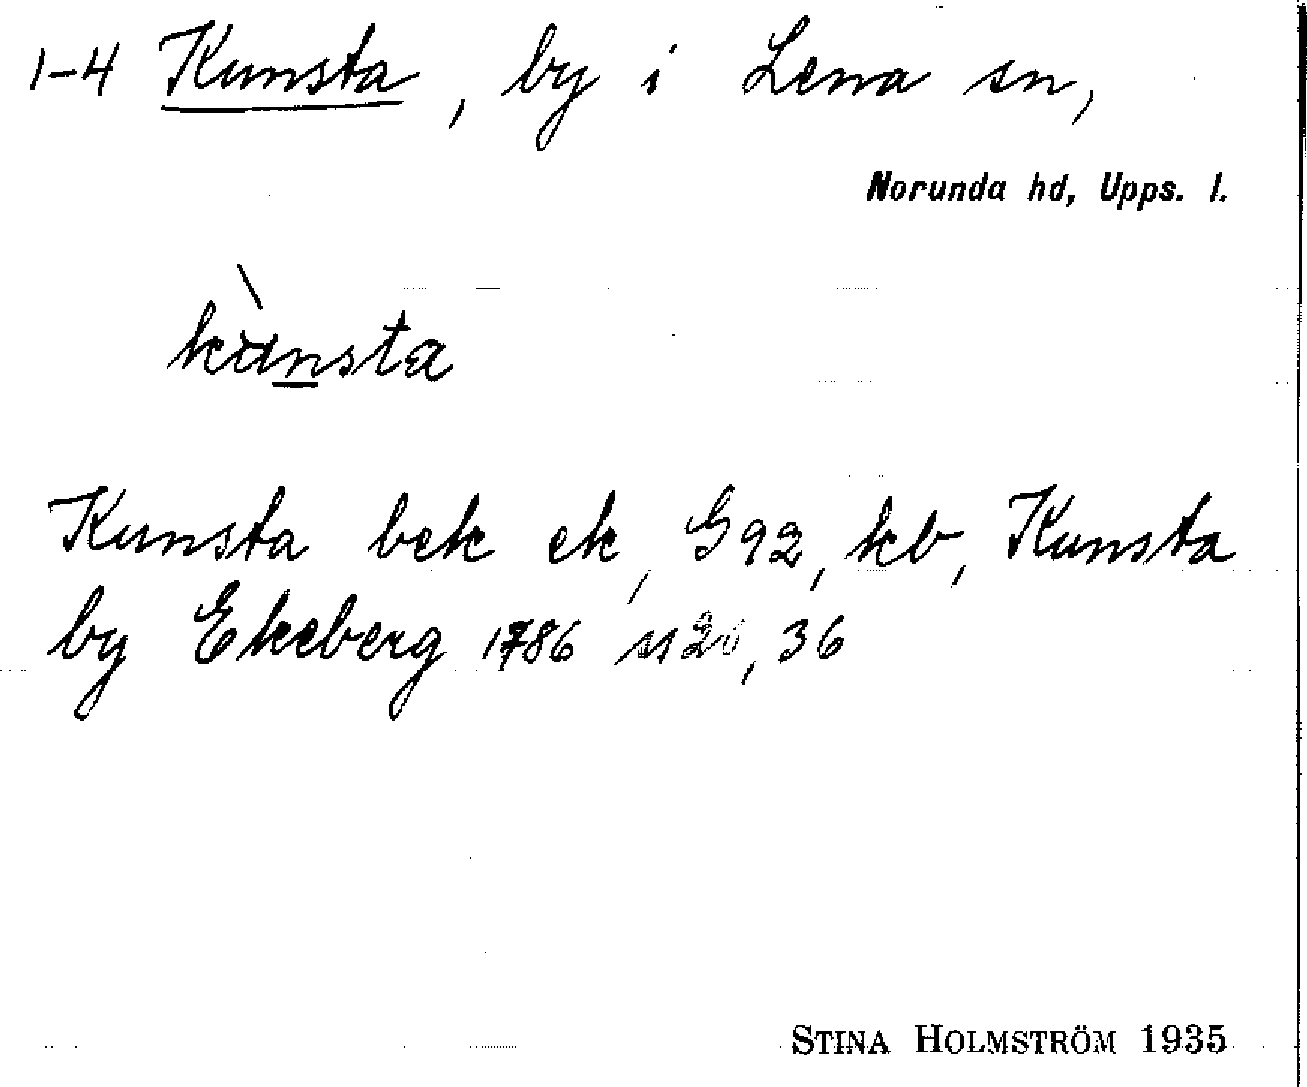 1-4 Kunsta, by i Lena sn,
Norunda hd, Upps. l.
kùnsta
Kunsta bek ek, G92, kb, Kunsta
by Ekeberg 1786 s1 20, 36
STINA HOLMSTRÖM 1935